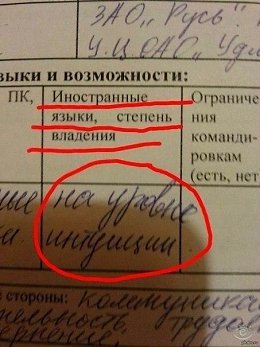 ЗАО „Русь"
У.Ц ОАО „Удм
зыки и возможности:
ПК,
Иностранные
языки, степень
владения
Ограниче
ния
команди-
ровкам
(есть, нет
на уровне
интуиции
е стороны: коммуника
тельность, трудо